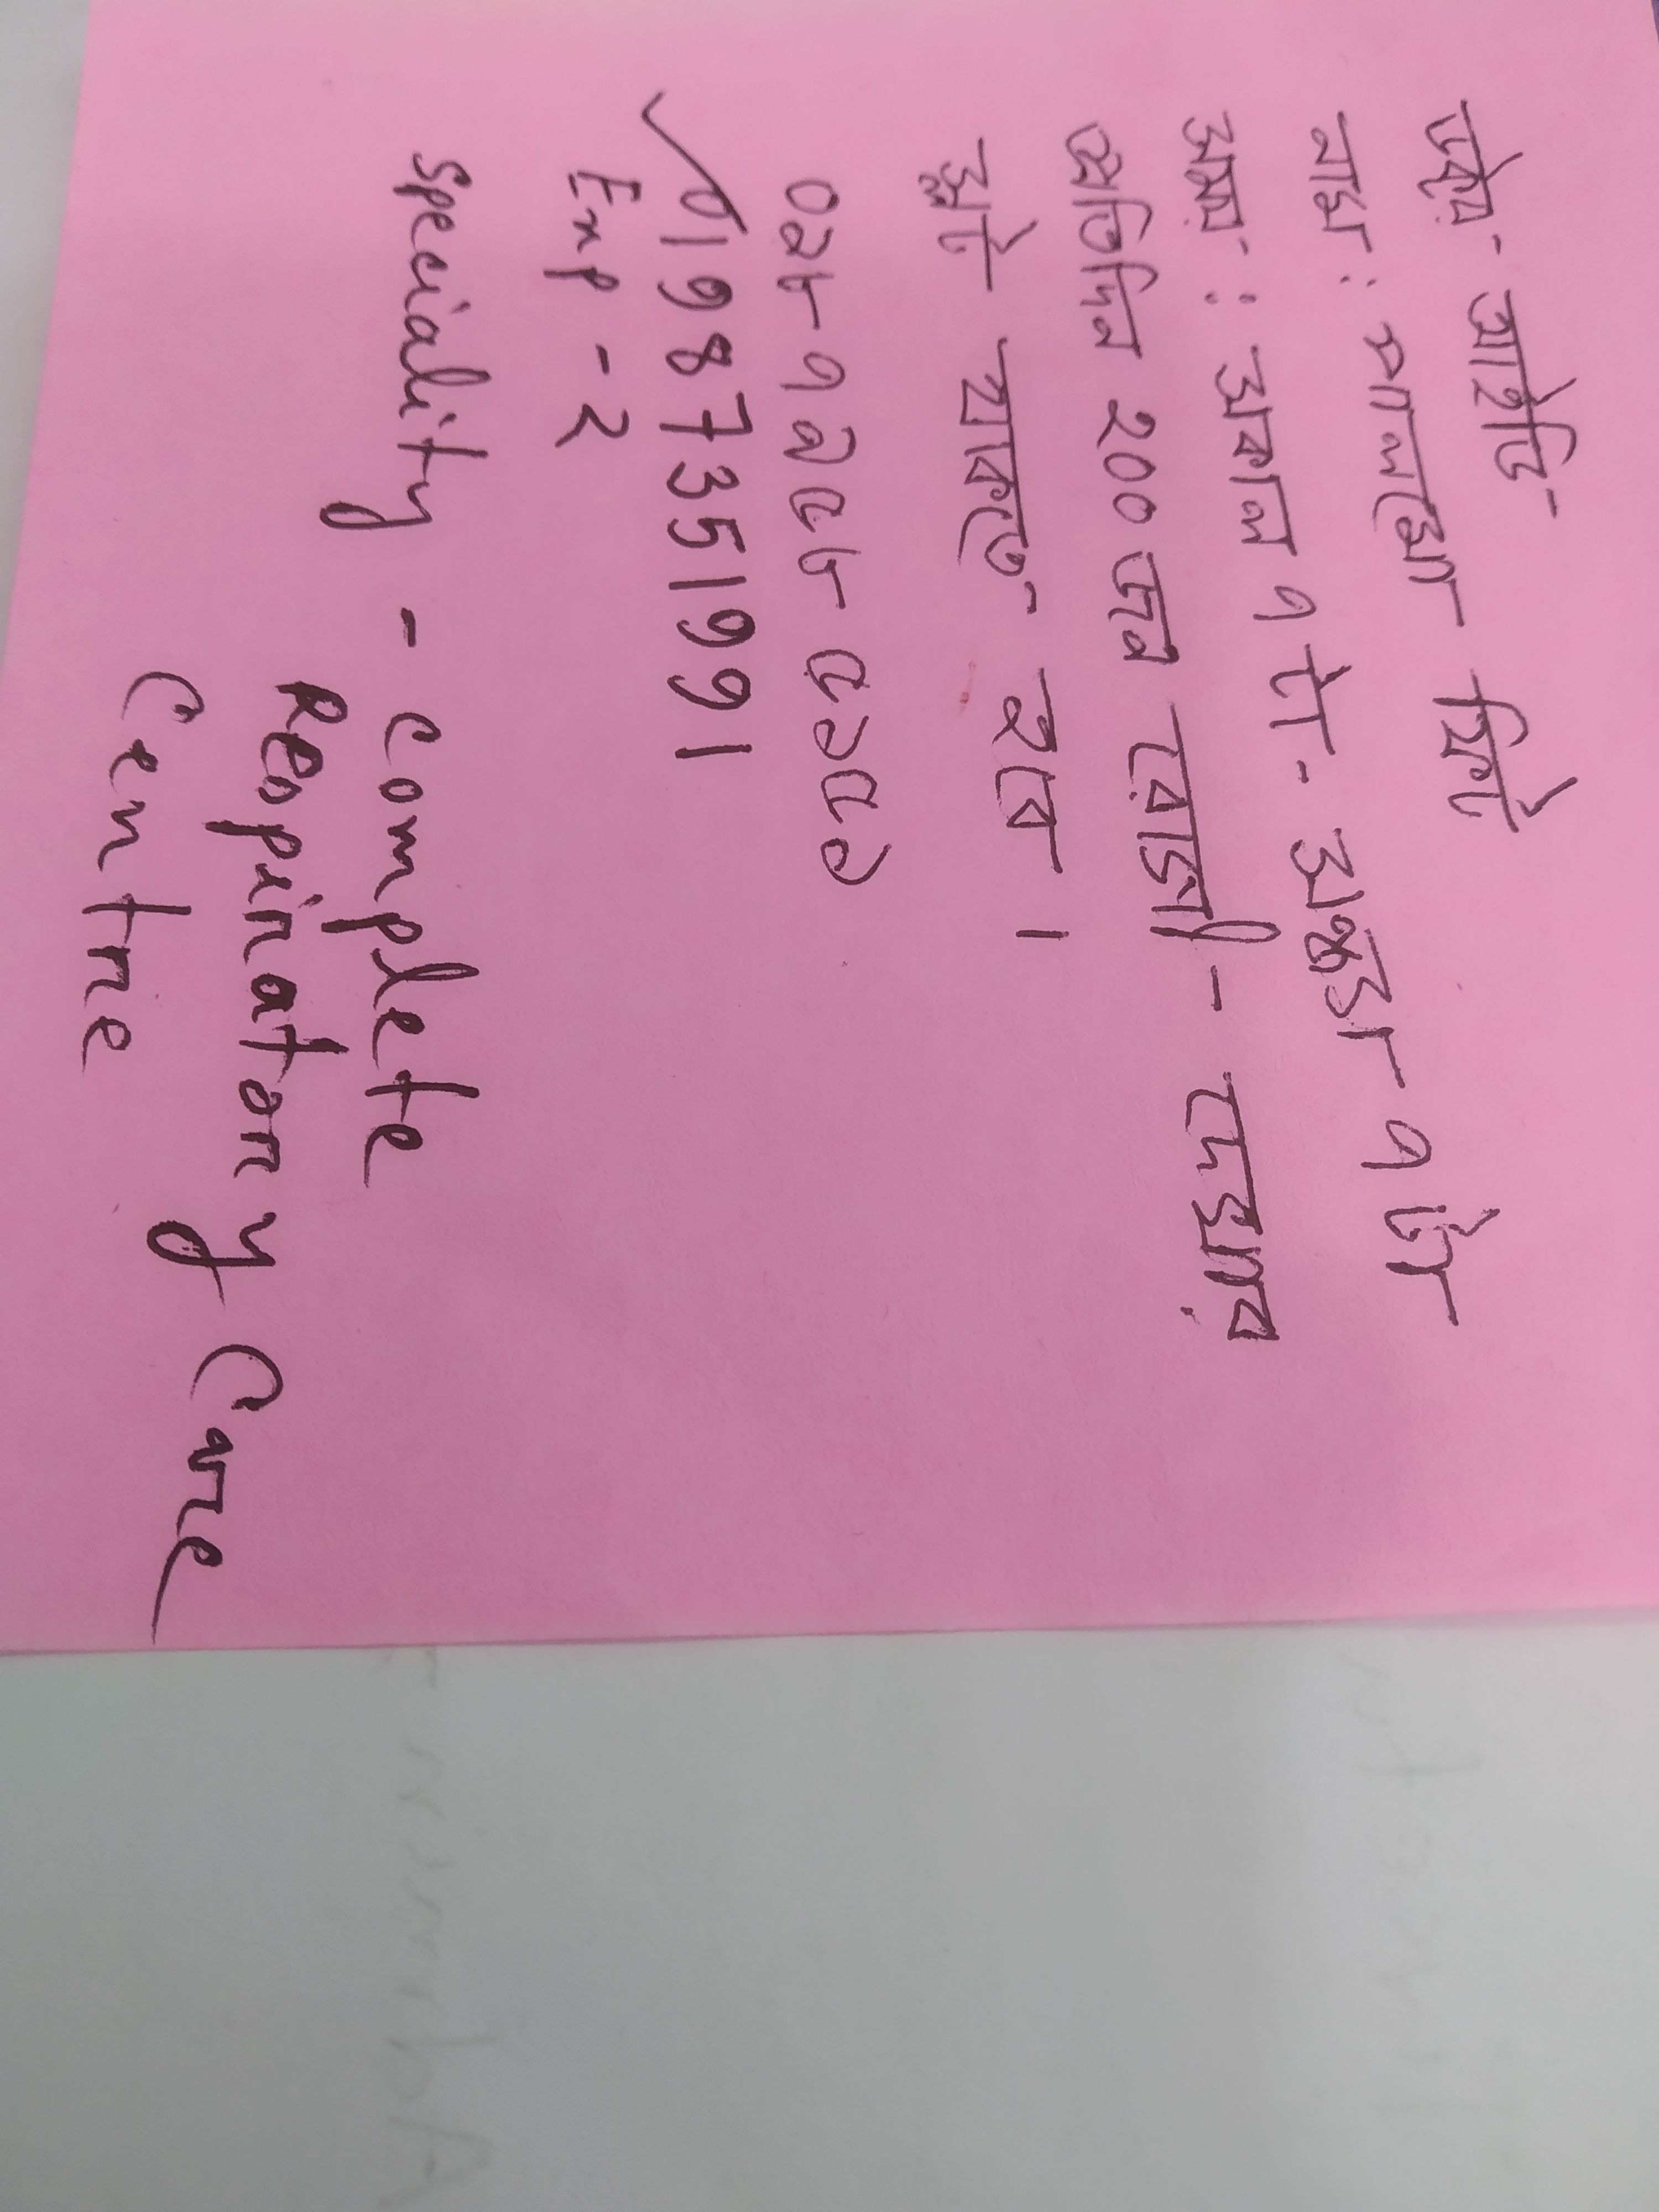 আইডি-
নাম : পালমো ফিট
সময় : সকাল ৭ টা - সন্ধ্যা ৭ টা
প্রতিদিন 200 জন রোগী - দেখার
স্লট থাকতে হবে।
0১৮৭৯৫৮৫১৫১
✓01987351991
Exp - 2
Speciality - complete
Respiratory Care
Centre